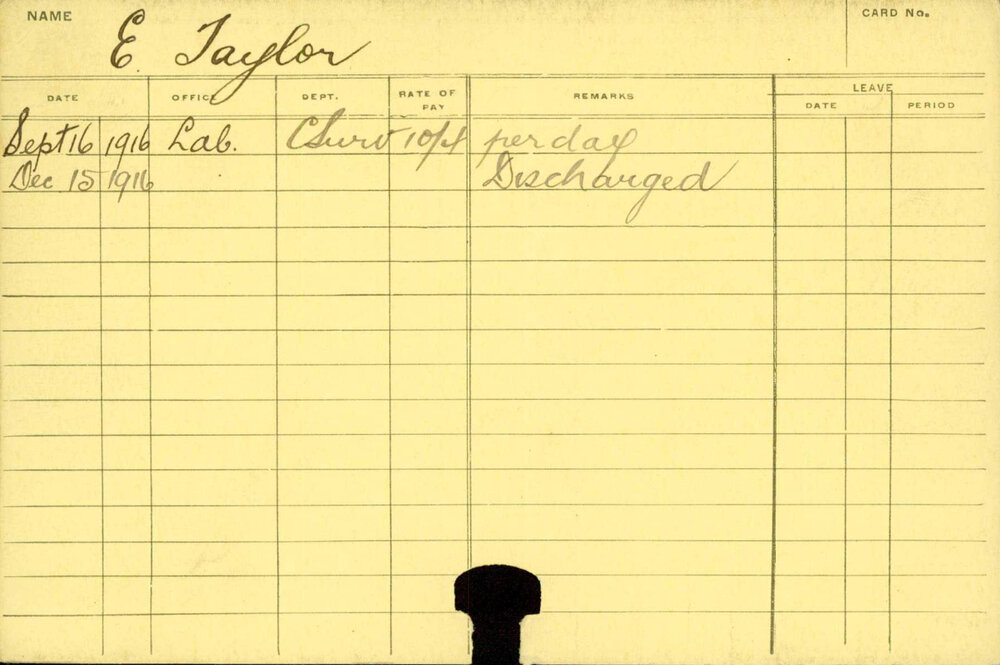 NAME E. Taylor CARD No.
DATE OFFICE DEPT. RATE OF PAY REMARKS LEAVE
DATE PERIOD
Sept 16 1916 Lab. C Surv 10/4 per day
Dec 15 1916 Discharged